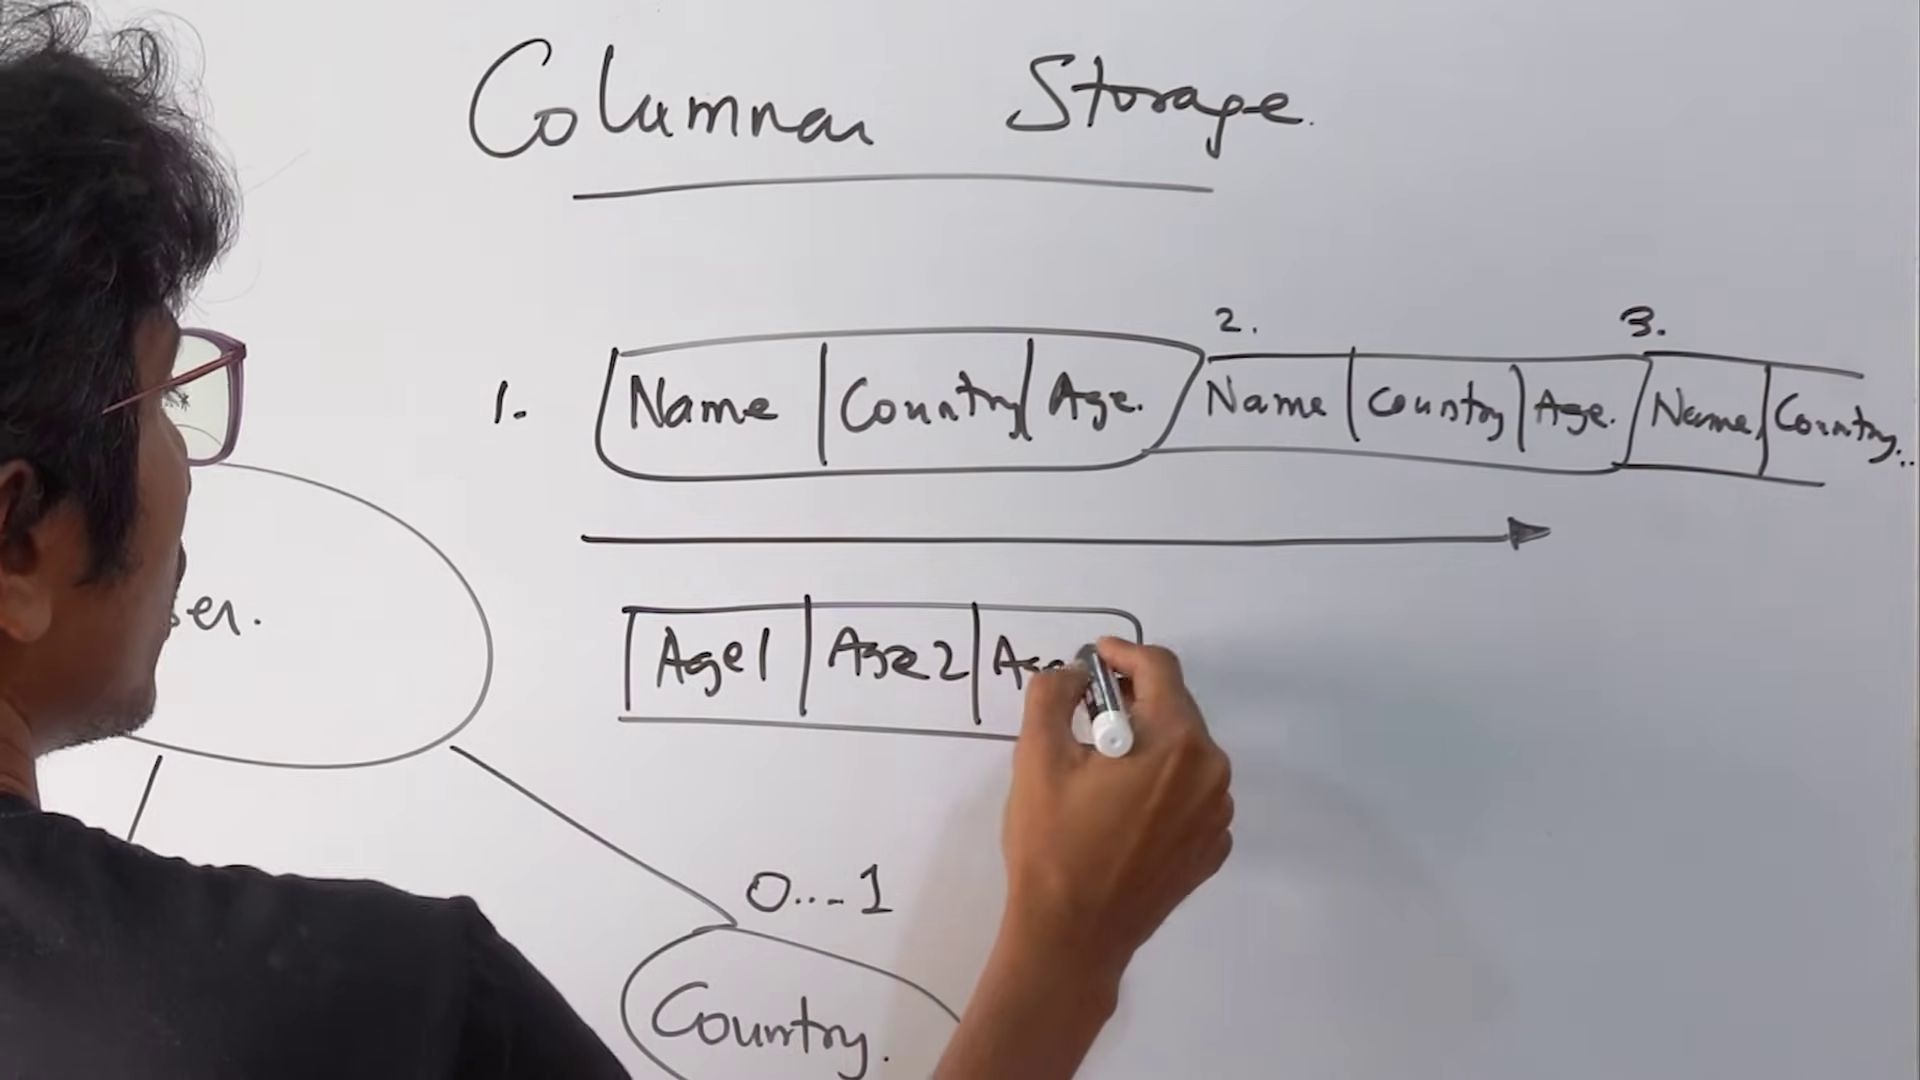 Columnar Storage.
2. 3.
1. Name Country Age. Name Country Age. Name Country..
Age1 Age2
0...1
Country.